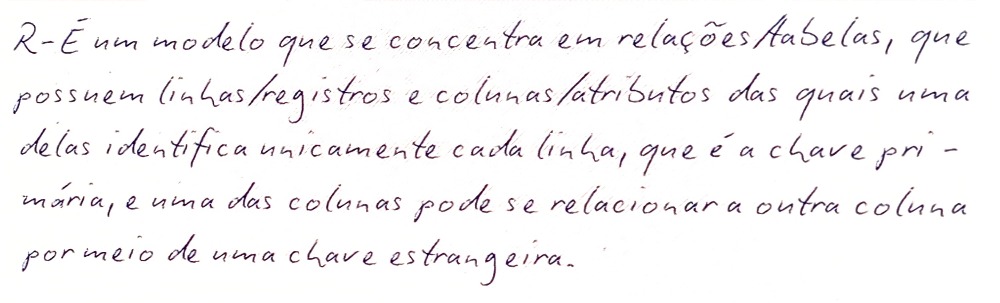 R-É um modelo que se concentra em relações/tabelas, que
possuem linhas/registros e colunas/atributos das quais uma
delas identifica unicamente cada linha, que é a chave pri-
mária, e uma das colunas pode se relacionar a outra coluna
por meio de uma chave estrangeira.